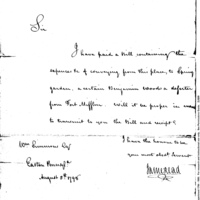 Sir
I have paid a Bill containing the
expences of conveying from this place, to Spring
garden, a certain Benjamin Woods a deserter
from Fort Mifflin. Will it be proper in me
to transmit to you the Bill and receipt?
I have the honour to be
your most obedt Servant
Wm Simmons Esq
Easton Pennsya
August 5th 1798